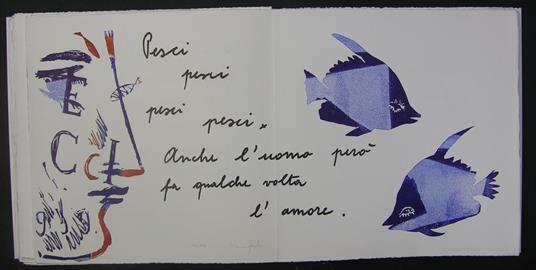 Pesci
pesci
pesci pesci,
Anche l'uomo però
fa qualche volta
l'amore.